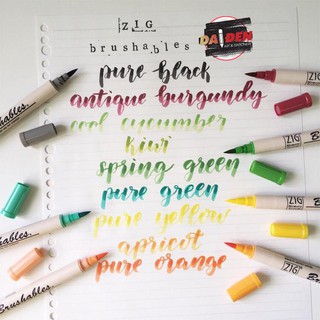 ZIG
DAIDEN
ART & STATIONERY
brushables
pure black
antique burgundy
cool cucumber
kiwi
spring green
pure green
pure yellow
apricot
pure orange
ZIG
Brushables.
Brushables.
ZIG
Brushables.
ZIG
Brushables